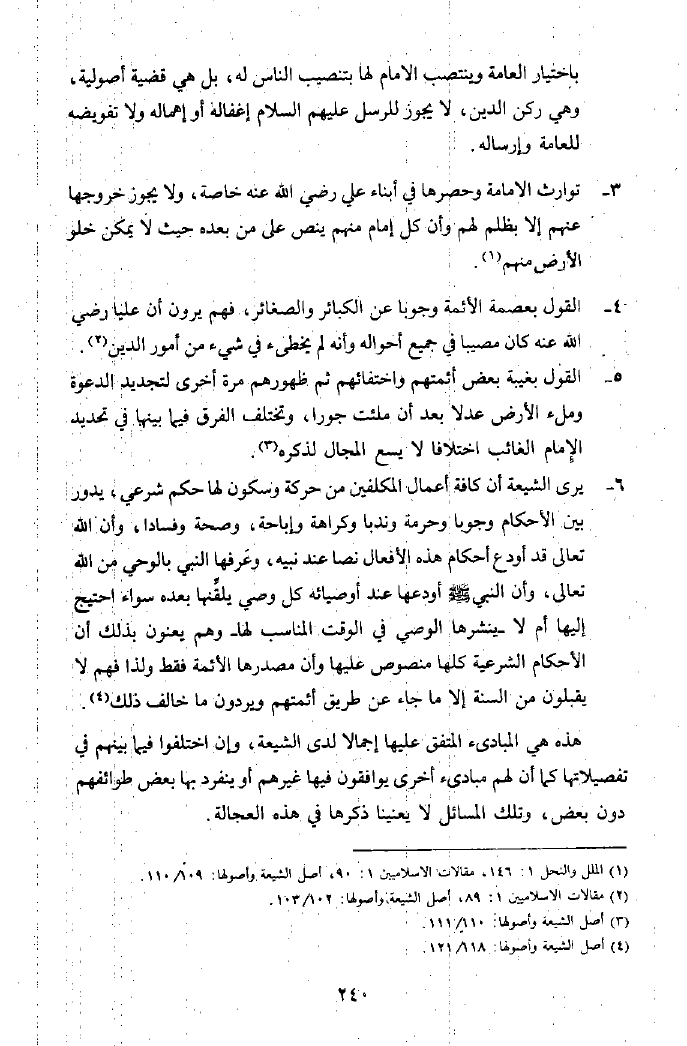 باختيار العامة وينتصب الامام لها بتنصيب الناس له، بل هي قضية أصولية،
وهي ركن الدين، لا يجوز للرسل عليهم السلام إغفاله أو إهماله ولا تفويضه
للعامة وإرساله.
٣ـ توارث الامامة وحصرها في أبناء علي رضي الله عنه خاصة، ولا يجوز خروجها
عنهم إلا بظلم لهم وأن كل إمام منهم ينص على من بعده حيث لا يمكن خلو
الأرض منهم(١).
٤ـ القول بعصمة الأئمة وجوبا عن الكبائر والصغائر، فهم يرون أن عليا رضي
الله عنه كان مصيبا في جميع أحواله وأنه لم يخطىء في شيء من أمور الدين(٢).
٥ـ القول بغيبة بعض أئمتهم واختفائهم ثم ظهورهم مرة أخرى لتجديد الدعوة
وملء الأرض عدلا بعد أن ملئت جورا، وتختلف الفرق فيما بينها في تحديد
الإمام الغائب اختلافا لا يسع المجال لذكره(٣).
٦ـ يرى الشيعة أن كافة أعمال المكلفين من حركة وسكون لها حكم شرعي، يدور
بين الأحكام وجوبا وحرمة وندبا وكراهة وإباحة، وصحة وفسادا، وأن الله
تعالى قد أودع أحكام هذه الأفعال نصا عند نبيه، وعَرفها النبي بالوحي من الله
تعالى، وأن النبي ﷺ أودعها عند أوصيائه كل وصي يلقِّنها بعده سواء احتيج
إليها أم لا ـ ينشرها الوصي في الوقت المناسب لها ـ وهم يعنون بذلك أن
الأحكام الشرعية كلها منصوص عليها وأن مصدرها الأئمة فقط ولذا فهم لا
يقبلون من السنة إلا ما جاء عن طريق أئمتهم ويردون ما خالف ذلك(٤).
هذه هي المبادىء المتفق عليها إجمالا لدى الشيعة، وإن اختلفوا فيما بينهم في
تفصيلاتها كما أن لهم مبادىء أخرى يوافقون فيها غيرهم أو ينفرد بها بعض طوائفهم
دون بعض، وتلك المسائل لا يعنينا ذكرها في هذه العجالة.
(١) الملل والنحل ١: ١٤٦، مقالات الاسلاميين ١: ٩٠، أصل الشيعة وأصولها: ١١٠/١٠٩.
(٢) مقالات الاسلاميين ١: ٨٩، أصل الشيعة وأصولها: ١٠٣/١٠٢.
(٣) أصل الشيعة وأصولها: ١١١/١١٠.
(٤) أصل الشيعة وأصولها: ١٢١/١١٨.
٢٤٠